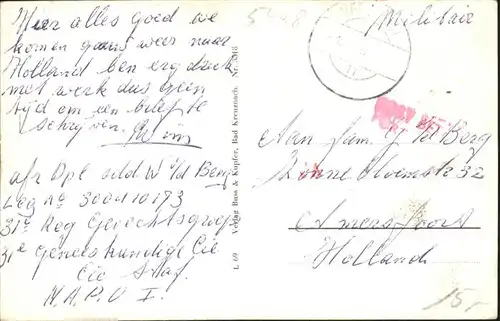 Hier alles goed we
komen gauw weer naar
Holland ben erg druk
met werk dus geen
tijd om een briefje
schrijven. Wim
afz Dpl sold W v/d Berg
Leg No 300410173
31e Reg Gevechtsgroep
31e Geneeskundige Cie
Cie Staf
N.A.P.O I.
L 69 Verlag Buss & Küpfer, Bad Kreuznach. Nr.
Militair
Aan fam. v/d Berg
32
Amersfoort
Holland
15,-